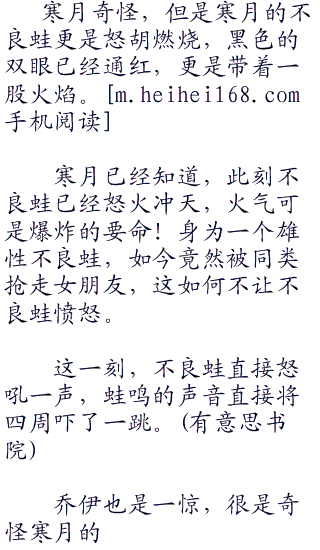 寒月奇怪，但是寒月的不
良蛙更是怒胡燃烧，黑色的
双眼已经通红，更是带着一
股火焰。[m.heihei168.com
手机阅读]
寒月已经知道，此刻不
良蛙已经怒火冲天，火气可
是爆炸的要命！身为一个雄
性不良蛙，如今竟然被同类
抢走女朋友，这如何不让不
良蛙愤怒。
这一刻，不良蛙直接怒
吼一声，蛙鸣的声音直接将
四周吓了一跳。(有意思书
院)
乔伊也是一惊，很是奇
怪寒月的